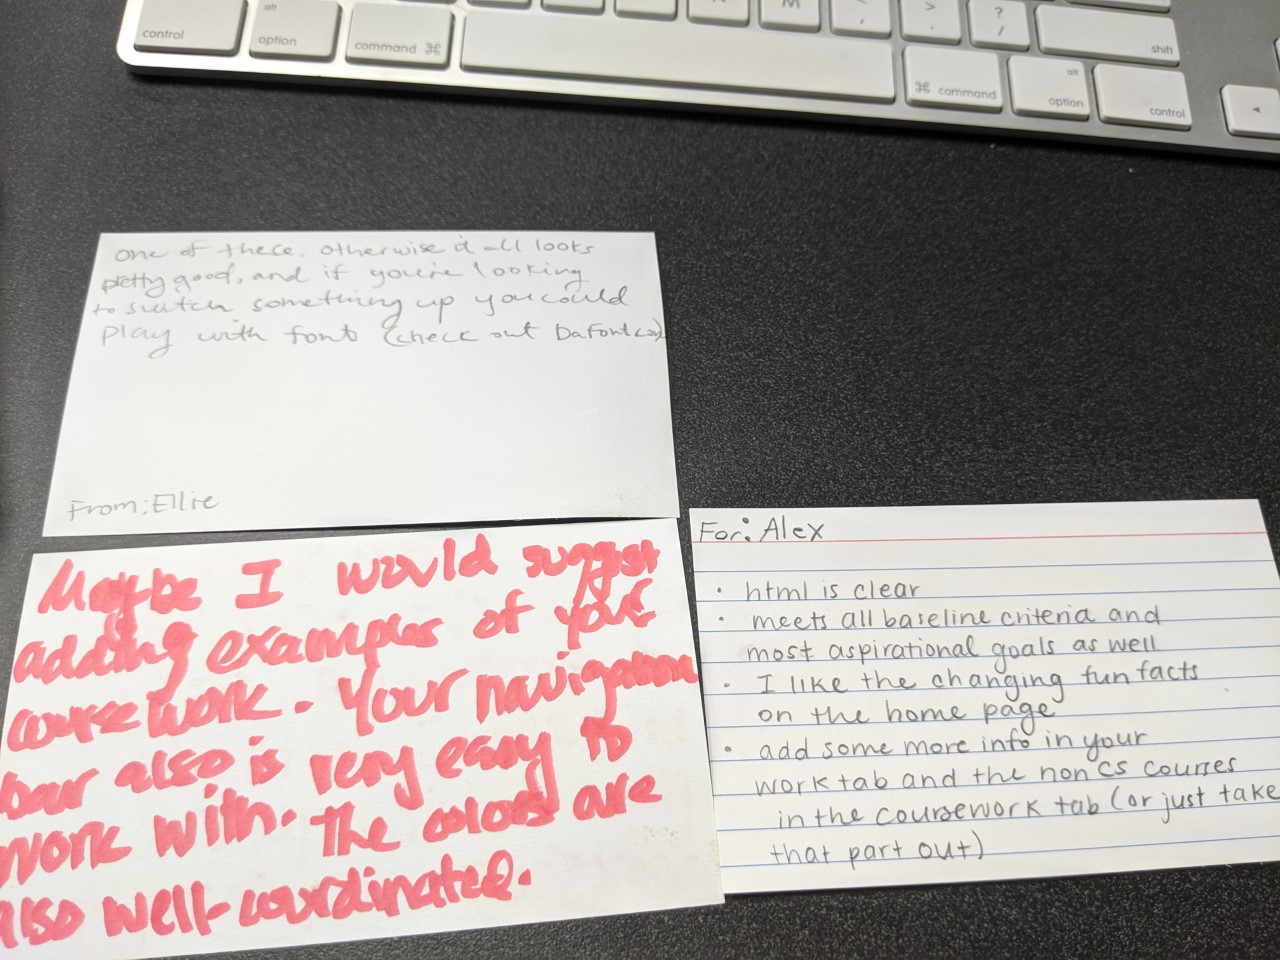 control
alt
option
command ⌘
M
<
,
>
.
?
/
shift
⌘ command
alt
option
control
one of these. otherwise it all looks
pretty good, and if you're looking
to switch something up you could
play with font (check out DaFont.com)
From: Ellie
Maybe I would suggest
adding examples of your
course work. Your navigation
bar also is very easy to
work with. The colors are
also well-coordinated.
For: Alex
· html is clear
· meets all baseline criteria and
most aspirational goals as well
· I like the changing fun facts
on the home page
· add some more info in your
work tab and the non CS courses
in the coursework tab (or just take
that part out)